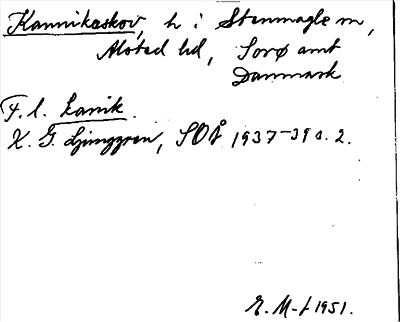 Kannikeskov, h i Stenmagle sn,
Alsted hd, Sorø amt
Danmark
F. l. kanik.
K. G. Ljunggren, SOÅ 1937-39 s. 2.
E. M-f 1951.